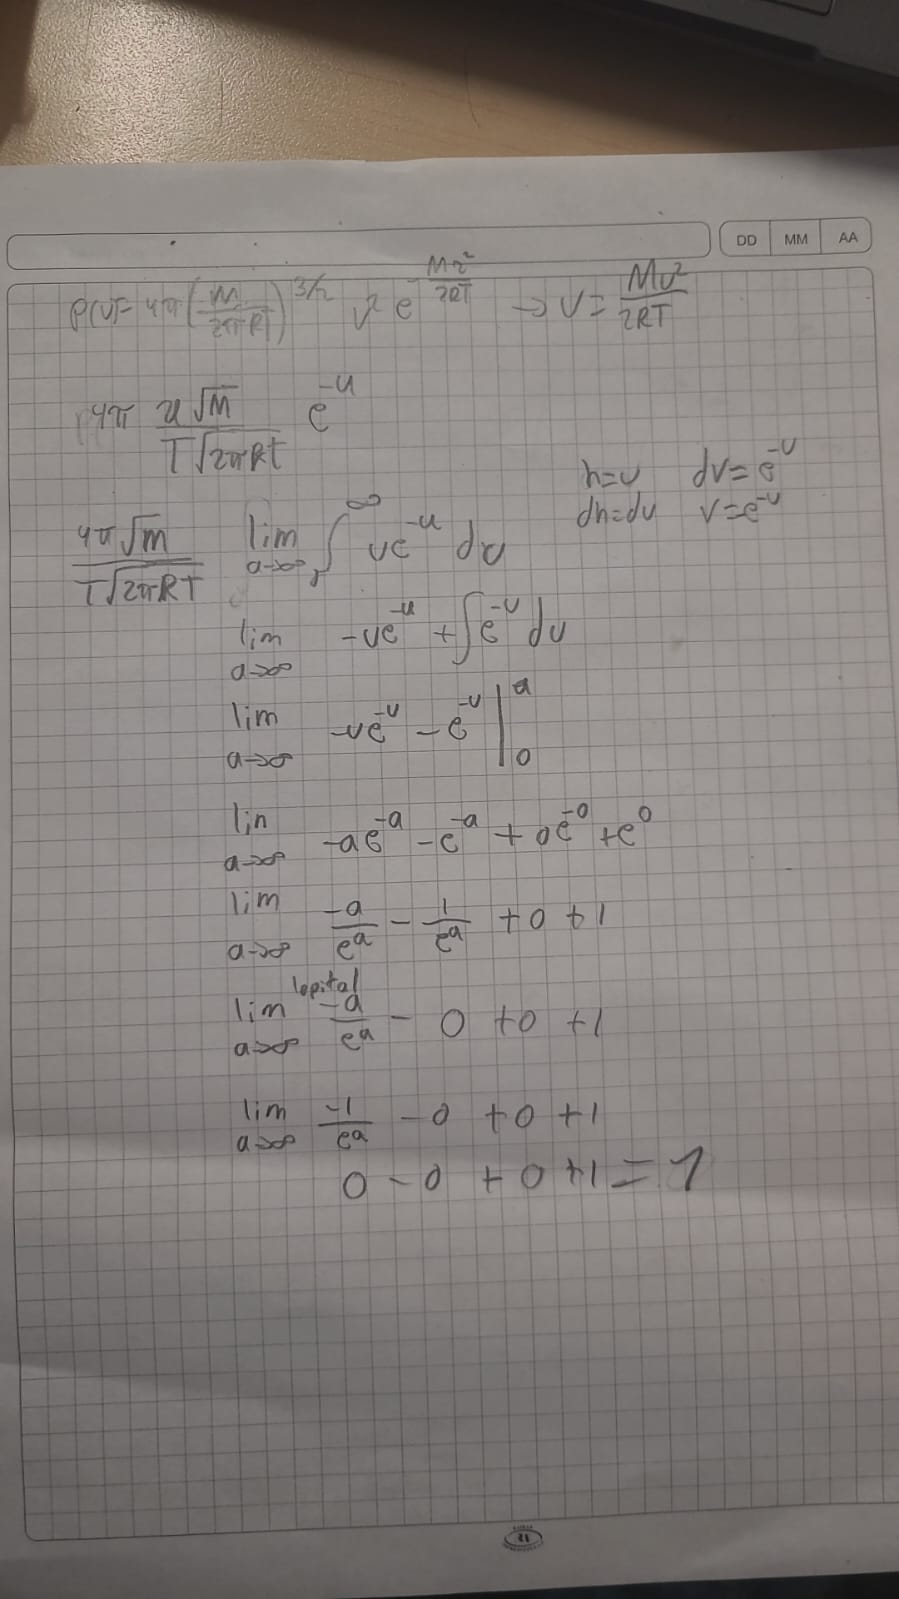 DD MM AA
P(v)= 4π (M/2πRT)^3/2 v² e^-Mv²/2RT → u = Mv²/2RT
4π u√M / T√2πRT e^-u
h=u dv=e^-u
dh=du v=e^-u
4π√M / T√2πRT lim a→∞ ∫ ue^-u du
lim a→∞ -ue^-u + ∫e^-u du
lim a→∞ -ue^-u - e^-u |₀^a
lim a→∞ -ae^-a - e^-a + 0e^-0 + e^0
lim a→∞ -a/e^a - 1/e^a + 0 + 1
lopital
lim a→∞ -a/e^a - 0 + 0 + 1
lim a→∞ -1/e^a - 0 + 0 + 1
0 - 0 + 0 + 1 = 1